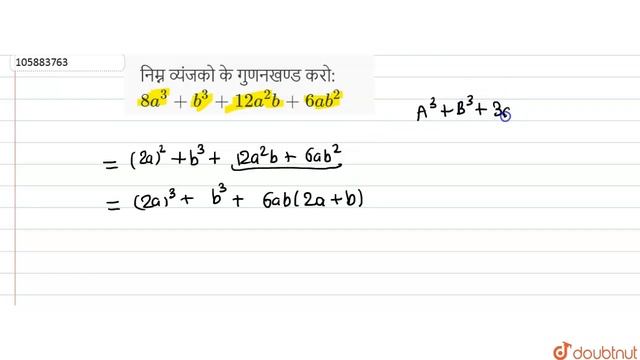 105883763
निम्न व्यंजको के गुणनखण्ड करो:
8a³ + b³ + 12a²b + 6ab²
A³ + B³ + 3
= (2a)² + b³ + 12a²b + 6ab²
= (2a)³ + b³ + 6ab(2a+b)
doubtnut